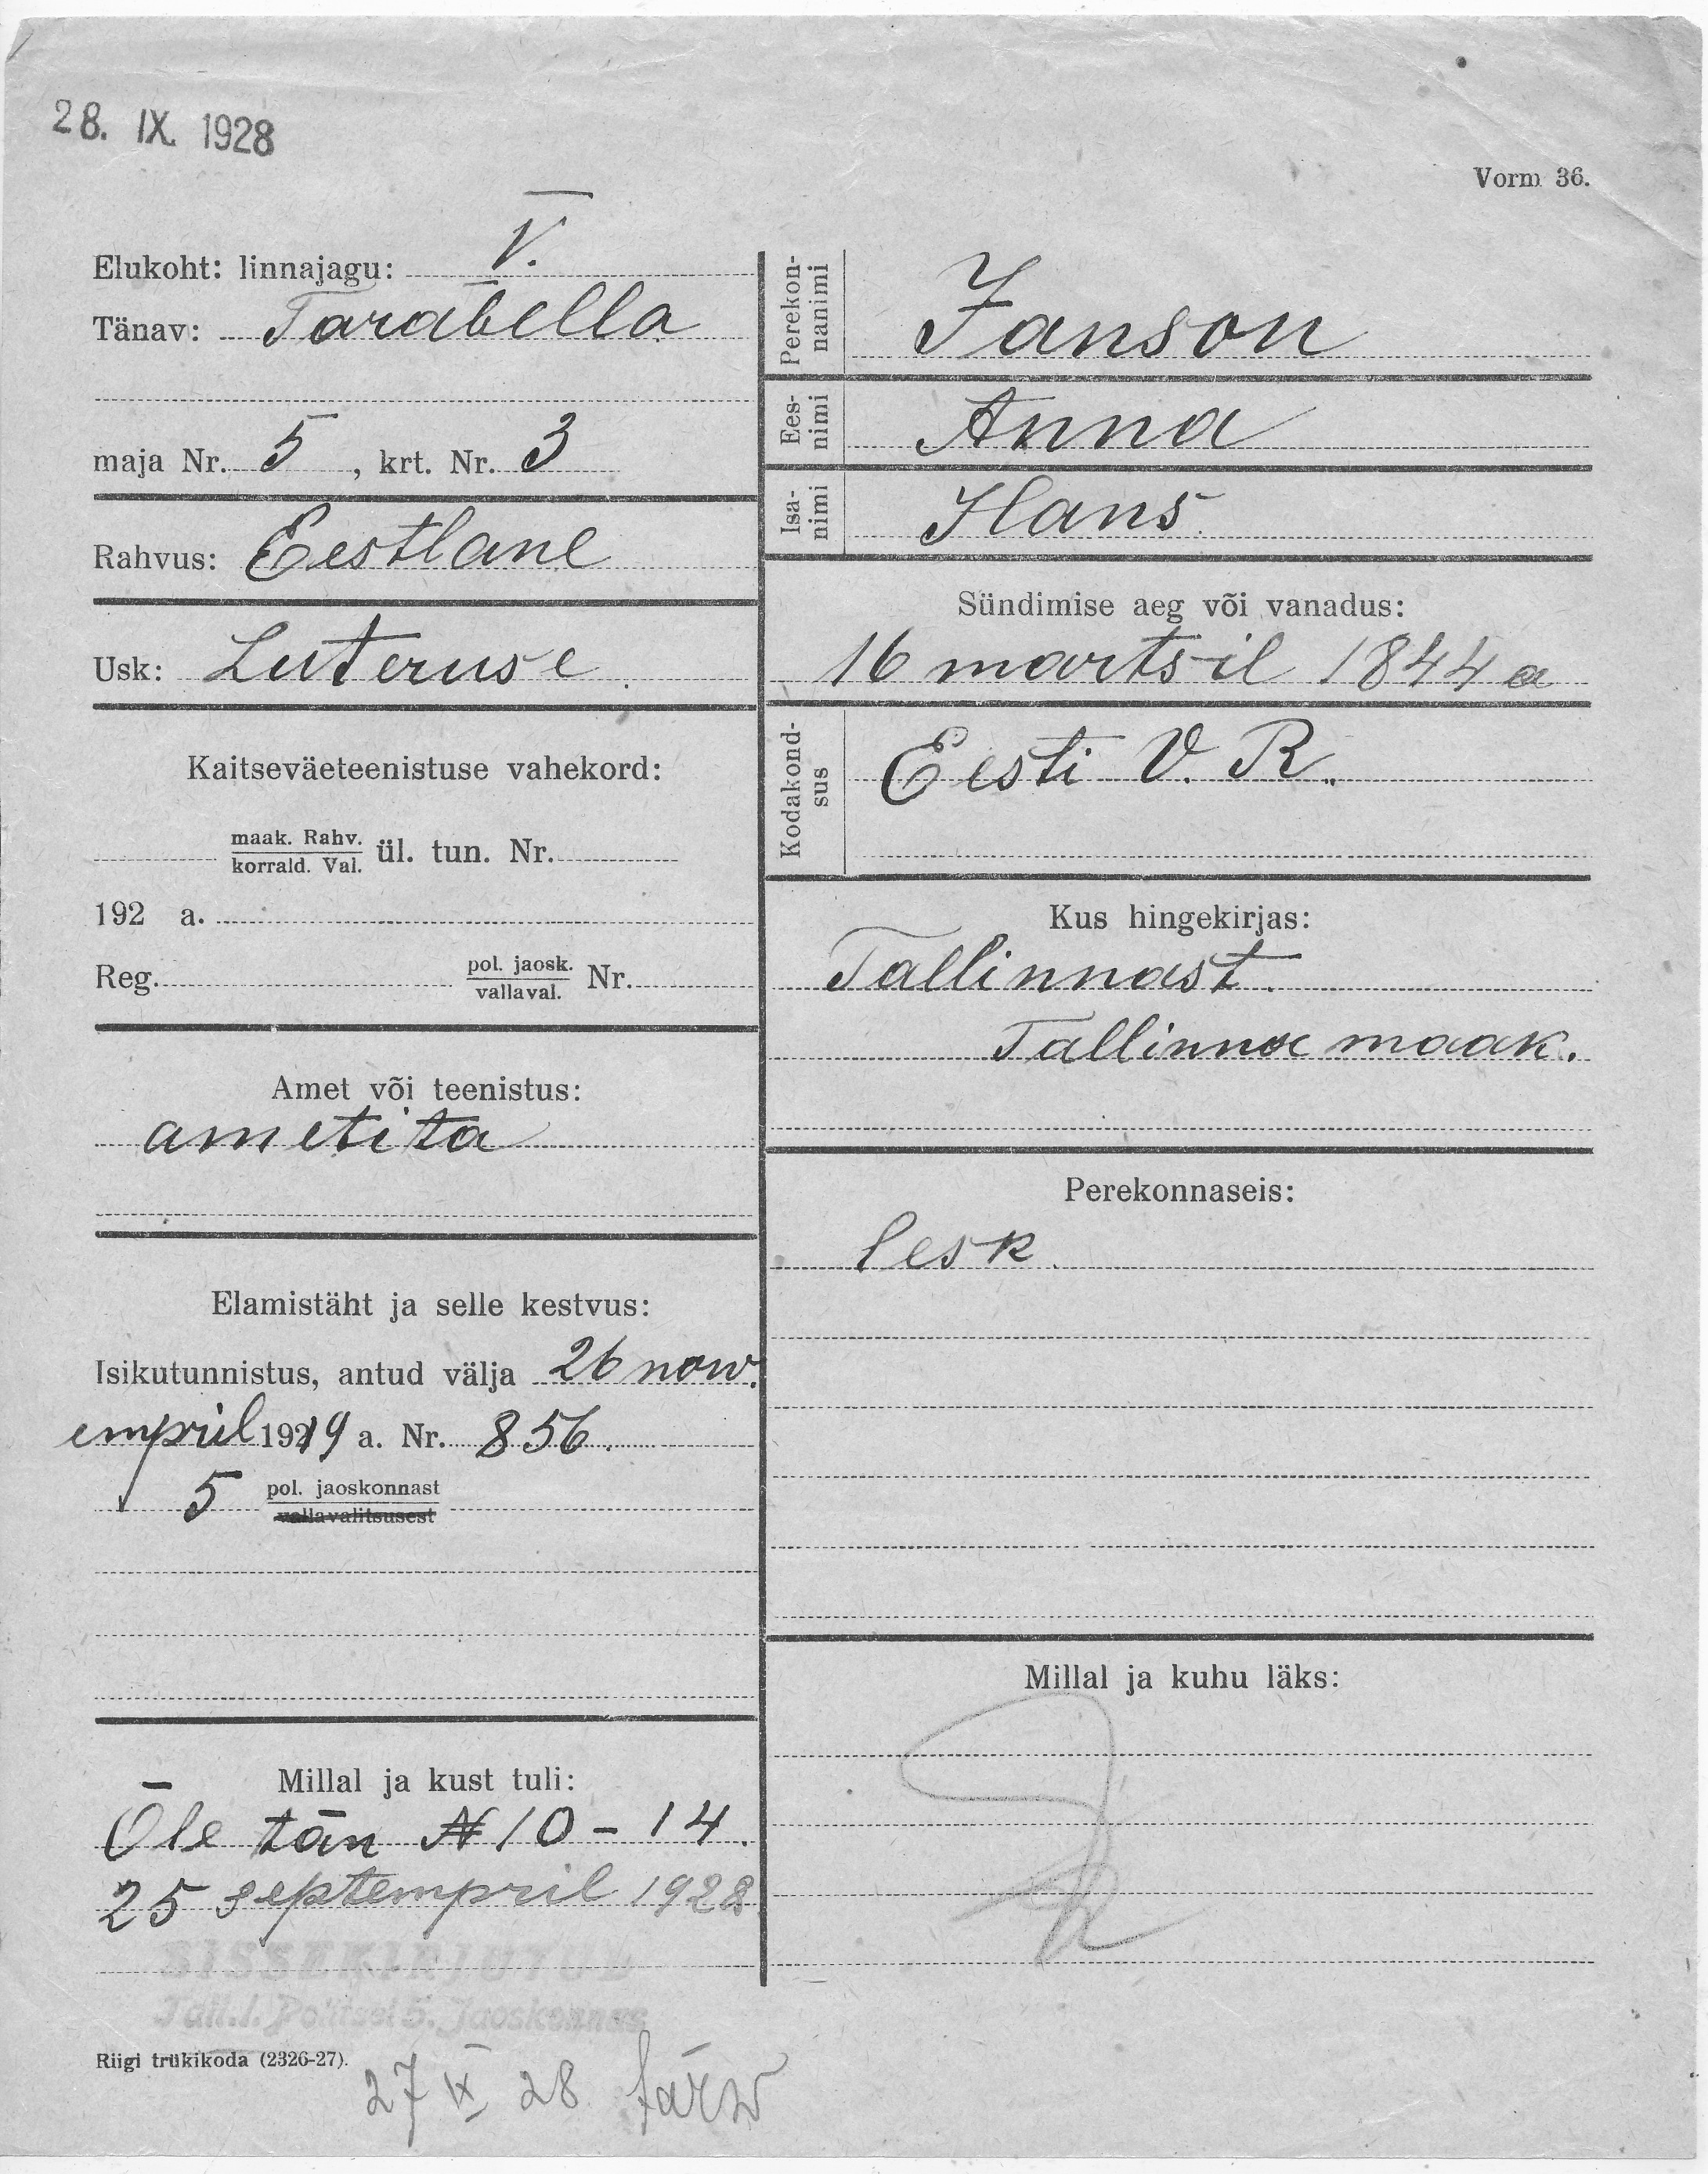 28. IX. 1928
Vorm 36.
Elukoht: linnajagu: V.
Tänav: Tarabella
maja Nr. 5, krt. Nr. 3
Rahvus: Eestlane
Usk: Luteruse
Kaitseväeteenistuse vahekord:
maak. Rahv.
korrald. Val. ül. tun. Nr.
192 a.
Reg. pol. jaosk.
vallaval. Nr.
Amet või teenistus:
ametita
Elamistäht ja selle kestvus:
Isikutunnistus, antud välja 26 now.
empril 1919 a. Nr. 856.
5 pol. jaoskonnast
vallavalitsusest
Millal ja kust tuli:
Õle tän N 10 - 14.
25 septempril 1928
SISSEKIRJUTUD
Tall.-l. Politsei 5. Jaoskonnas
Riigi trükikoda (2326-27).
27 IX 28
Perekon-
nanimi
Janson
Ees-
nimi
Anna
Isa-
nimi
Hans
Sündimise aeg või vanadus:
16 martsil 1844 a
Kodakond-
sus
Eesti V. R.
Kus hingekirjas:
Tallinnast.
Tallinna maak.
Perekonnaseis:
lesk
Millal ja kuhu läks: